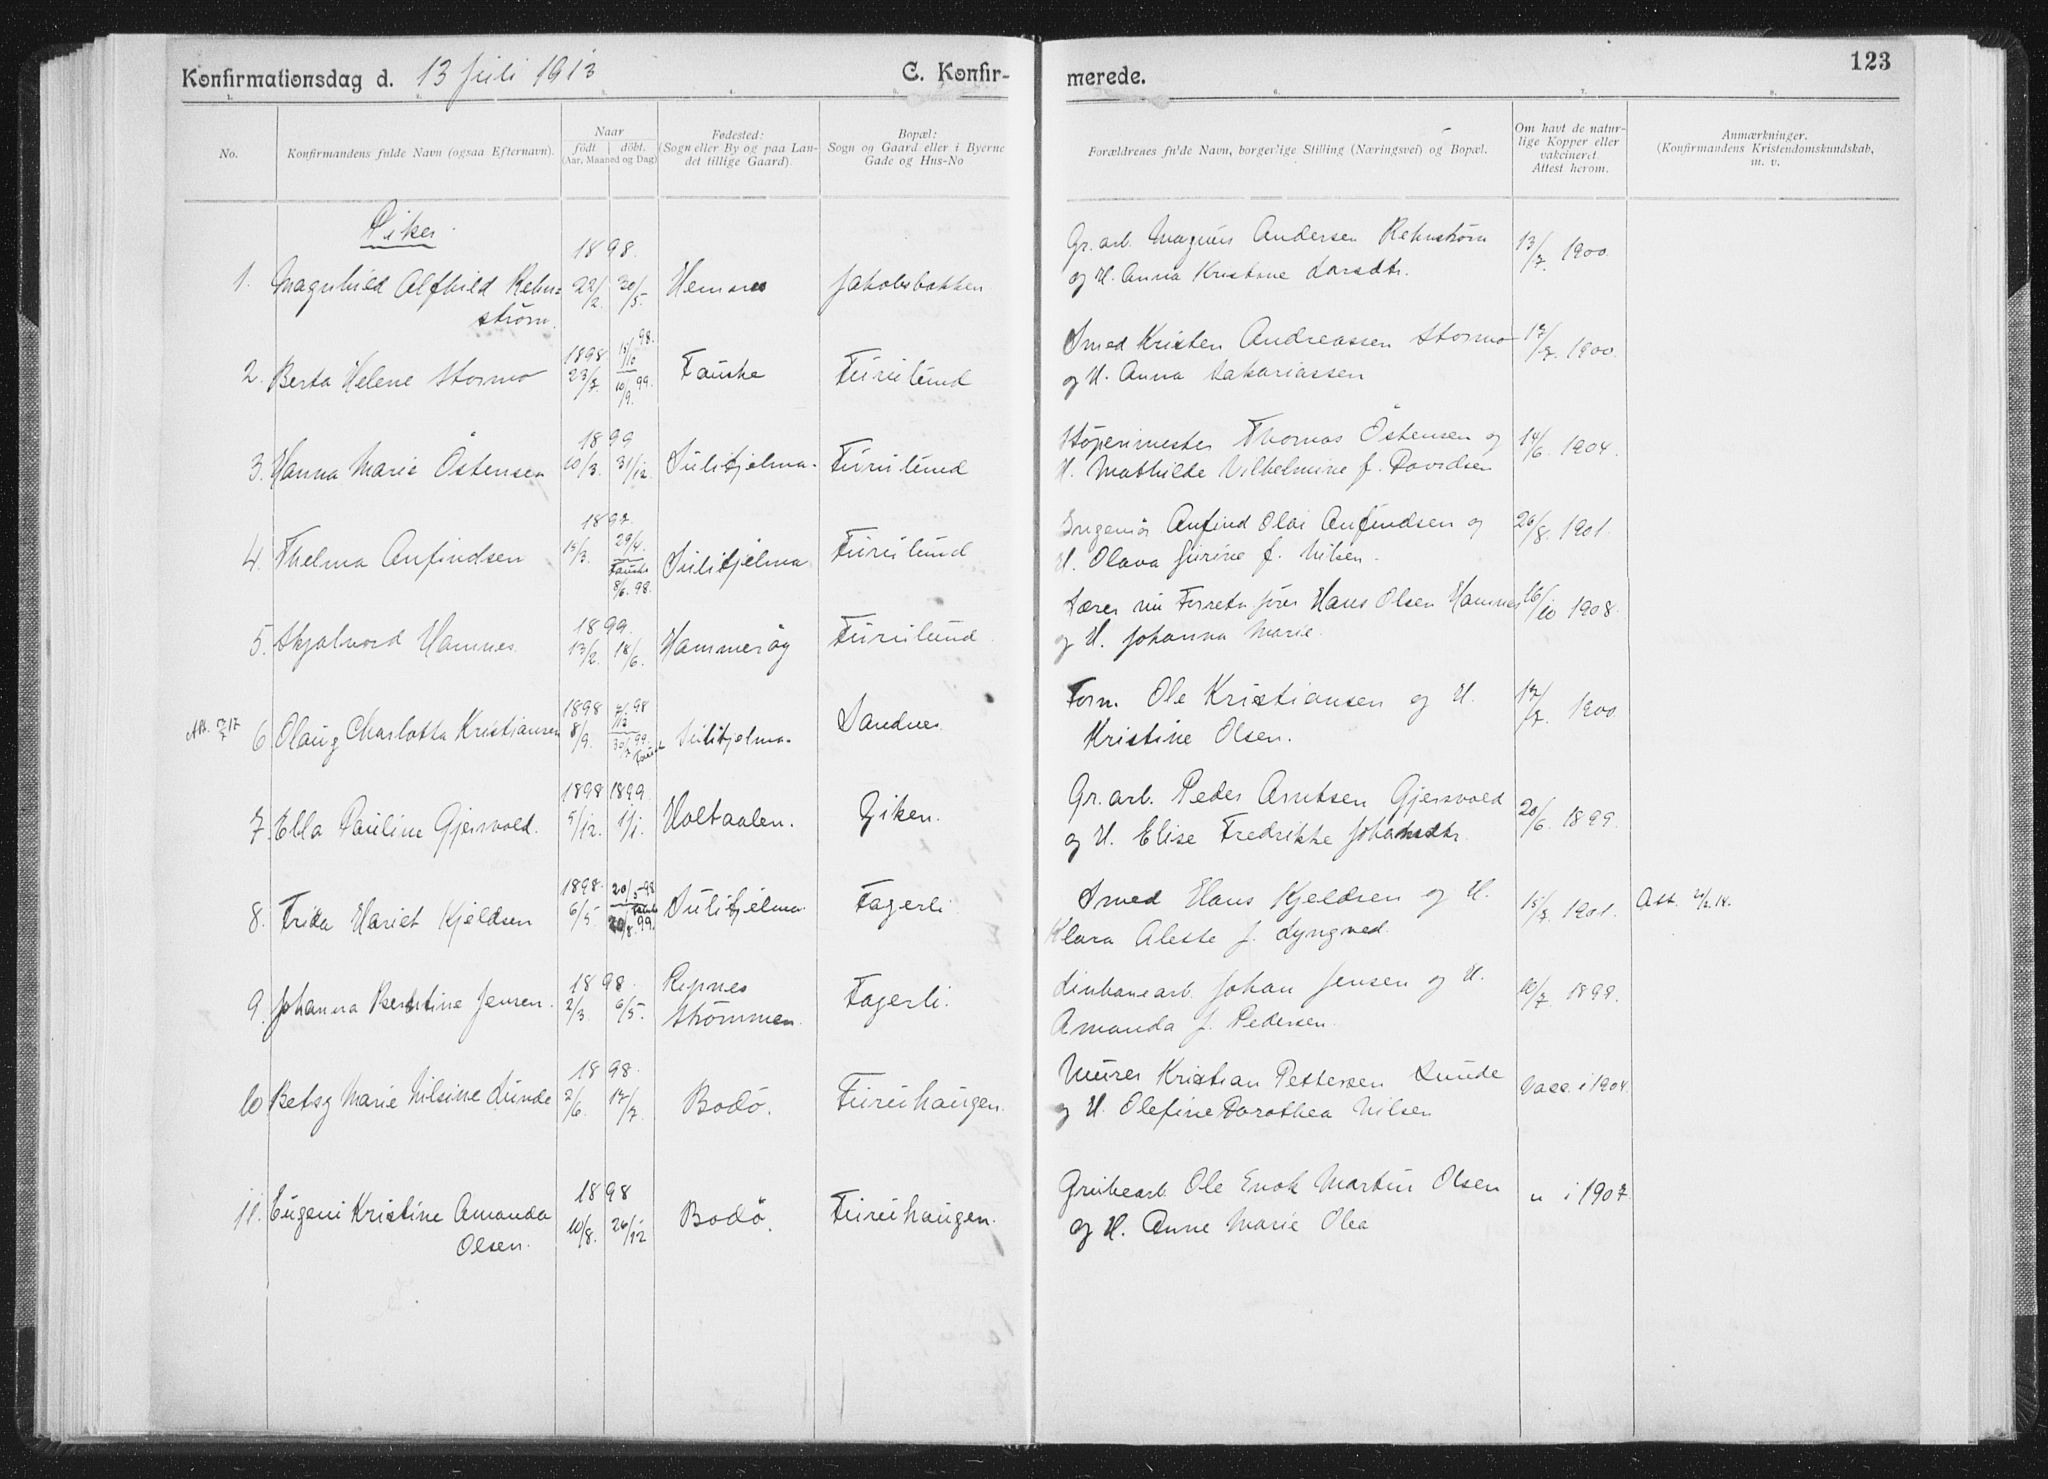 123
Konfirmationsdag d. 13 Juli 1913 C. Konfir- merede.
1. 2. 3. 4. 5. 6. 7. 8.
No. Konfirmandens fulde Navn (ogsaa Efternavn). Naar födt döbt. (Aar, Maaned og Dag) Fødested: (Sogn eller By og paa Landet tillige Gaard). Bopæl: Sogn og Gaard eller i Byerne Gade og Hus-No Forældrenes fulde Navn, borgerlige Stilling (Næringsvei) og Bopæl. Om havt de naturlige Kopper eller vakcineret. Attest herom. Anmærkninger. (Konfirmandens Kristendomskundskab, m. v.
Piker.
1898.
Gr. arb. Magnus Andersen Rehnström 13/7. 1900
1. Magnhild Alfhild Rehn= 22/2. 20/5. Hemnes Jakobsbakken og H. Anna Kristine Larsdtr.
ström.
1898 98. Smed Kristen Andreassen Stormo 17/7. 1900.
2. Berta Helene Stormo 23/7. 10/9. 99. Fauske Furulund og H. Anna Zakariassen
1899 Thomas Östensen og 14/6. 1904.
3. Hanna Marie Östensen 10/3. 31/12. Sulitjelma. Furulund H. Mathilde Vilhelmine f. Davidsen
1897. Ingeniör Anfind Olai Anfindsen og 26/8. 1901.
4. Thelma Anfindsen 15/3. 29/4. Fauske 8/6. 98. Sulitjelma Furulund H. Olava Jurine f. Nilsen.
1899. Lærer nu Forretn förer Hans Olsen Hamnes 16/10 1908.
5. Skjalvord Hamnes. 13/2. 18/6. Hammeröy Furulund og H. Johanna Marie.
1898 98 Form. Ole Kristiansen og H. 17/7. 1900
Att. 17 6. Olaug Charlotta Kristiansen 8/9. 30/7 99 Fauske Sulitjelma. Sandnes Kristine Olsen.
1898 1899. Gr. arb. Peder Arntsen Gjersvold 20/6. 1899.
7. Ella Pauline Gjersvold. 5/12. 1/1. Holtaalen. Giken. og H. Elise Fredrikke Johansdtr.
1898. 20/5 98 Smed Hans Kjeldsen og H. 15/7. 1901. Att. 14.
8. Frida Hariet Kjeldsen 6/5. 20/8. 99. Sulitjelma Fagerli Klara Aleste f. Lyngved.
1898. Repnes Linbanearb. Johan Jensen og H. 10/7. 1899.
9. Johanna Berntine Jensen. 2/3. 6/5. Strömmen. Fagerli. Amanda f. Pedersen.
1898. Murer Kristian Pettersen Lunde
10 Betsy Marie Nilsine Lunde 2/6. 17/7. Bodö. Furuhaugen. og H. Olefine Dorothea Nilsen Vacc. i 1904.
1898 Grubearb. Ole Enok Martin Olsen
11. Eugeni Kristine Amanda 10/8. 26/12 Bodö. Furuhaugen. og H. Anne Marie Olea " i 1907.
Olsen.